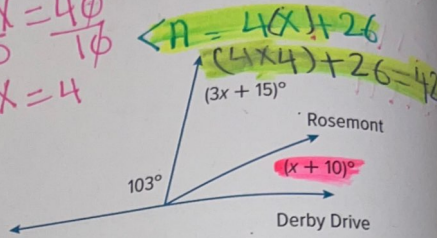 x = 40/10
x = 4
<A = 4(x)+26
(4x4)+26=42
(3x + 15)°
Rosemont
(x + 10)°
103°
Derby Drive